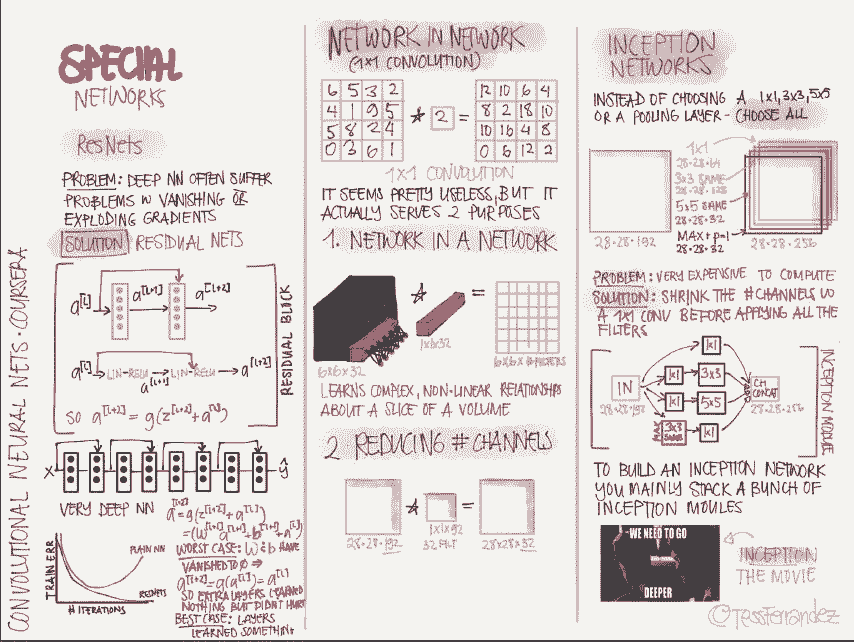 CONVOLUTIONAL NEURAL NETS · COURSERA
SPECIAL
NETWORKS
ResNets
PROBLEM: DEEP NN OFTEN SUFFER
PROBLEMS W VANISHING OR
EXPLODING GRADIENTS
SOLUTION RESIDUAL NETS
a[l] a[l+1] a[l+2]
a[l] LIN-RELU LIN-RELU a[l+2]
a[l+1]
SO a[l+2] = g(z[l+2] + a[l])
RESIDUAL BLOCK
X ŷ
VERY DEEP NN
a[l+2] = g(z[l+2] + a[l])
= (W[l+2] a[l+1] + b[l+2] + a[l])
WORST CASE: W & b HAVE
VANISHED TO 0 ⇒
a[l+2] = g(a[l]) = a[l]
SO EXTRA LAYERS LEARNED
NOTHING BUT DIDN'T HURT
BEST CASE: LAYERS
LEARNED SOMETHING
TRAIN ERR
PLAIN NN
RESNETS
# ITERATIONS
NETWORK IN NETWORK
(1x1 CONVOLUTION)
6 5 3 2
4 1 9 5
5 8 2 4
0 3 6 1
* 2 =
12 10 6 4
8 2 18 10
10 16 4 8
0 6 12 2
1x1 CONVOLUTION
IT SEEMS PRETTY USELESS, BUT IT
ACTUALLY SERVES 2 PURPOSES
1. NETWORK IN A NETWORK
* =
6x6x32
1x1x32
6x6x #FILTERS
LEARNS COMPLEX, NON-LINEAR RELATIONSHIPS
ABOUT A SLICE OF A VOLUME
2 REDUCING # CHANNELS
* =
28·28·192
1x1x192
32 FILT
28x28x32
INCEPTION
NETWORKS
INSTEAD OF CHOOSING A 1x1, 3x3, 5x5
OR A POOLING LAYER - CHOOSE ALL
1x1
28·28·64
3x3 SAME
28·28·128
5x5 SAME
28·28·32
MAX + p=1
28·28·32
28·28·192
28·28·256
PROBLEM: VERY EXPENSIVE TO COMPUTE
SOLUTION: SHRINK THE # CHANNELS W
A 1x1 CONV BEFORE APPLYING ALL THE
FILTERS
IN
28·28·192
1x1
1x1 3x3
1x1 5x5
MAX 3x3 SAME 1x1
CH
CONCAT
28·28·256
INCEPTION MODULE
TO BUILD AN INCEPTION NETWORK
YOU MAINLY STACK A BUNCH OF
INCEPTION MODULES
WE NEED TO GO
DEEPER
INCEPTION
THE MOVIE
@TessFerrandez